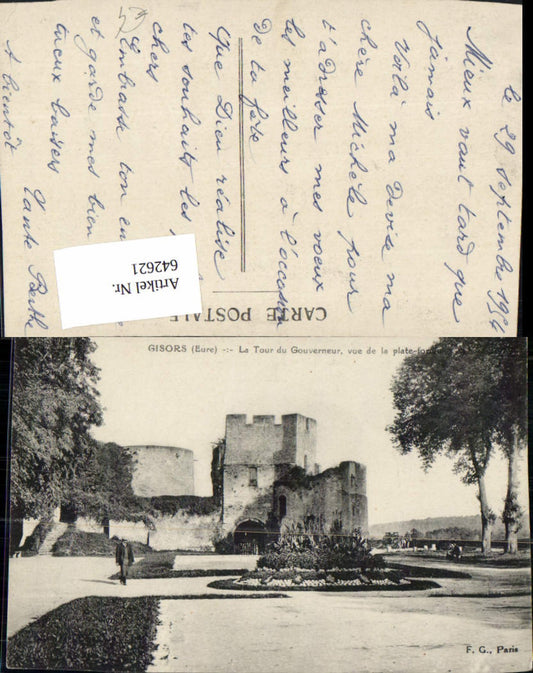 le 29 Septembre 1954
Mieux vaut tard que
jamais
Voilà ma Devise ma
chère Michele pour
t'adresser mes voeux
les meilleurs à l'occasion
de ta fête
Que Dieu réalise
les souhaits les
chers
Embrasse ton
et garde mes bien
baisers
Tante Berthe
A bientôt
CARTE POSTALE
Artikel Nr.
642621
GISORS (Eure) -:- La Tour du Gouverneur, vue de la plate-for
F. G., Paris